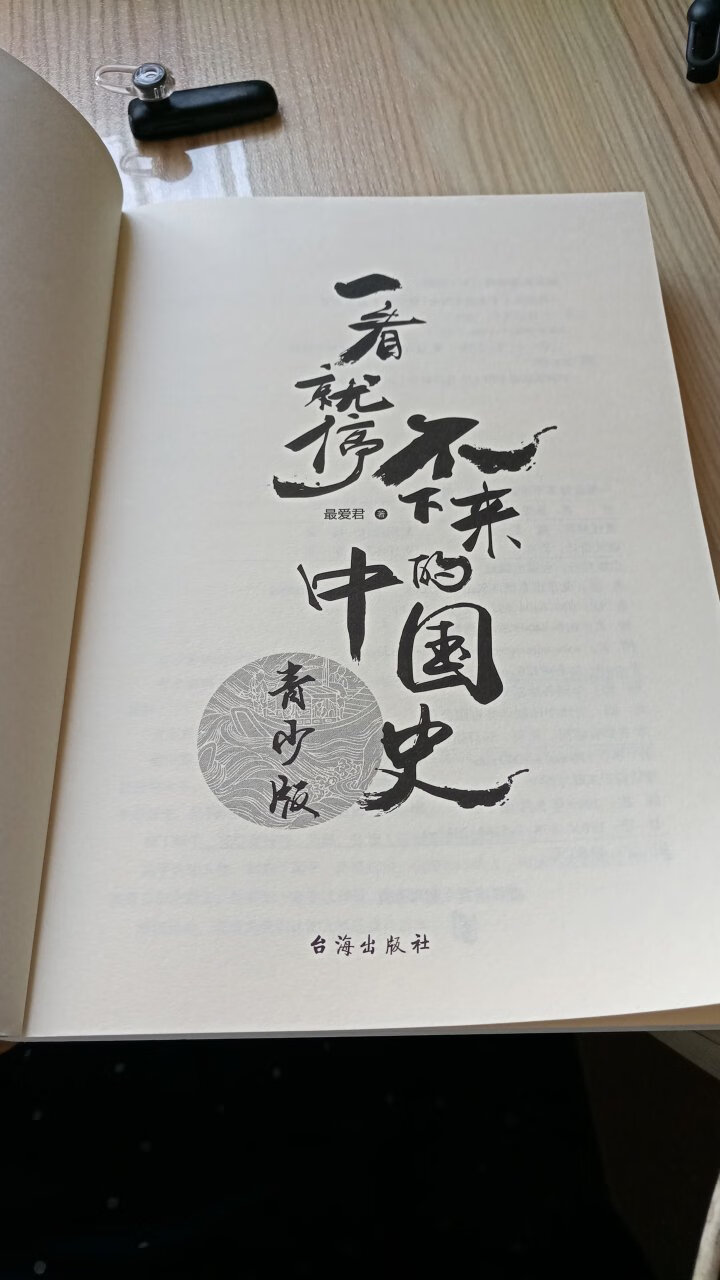 一看就停不下来的中国史
最爱君 著
青少版
台海出版社